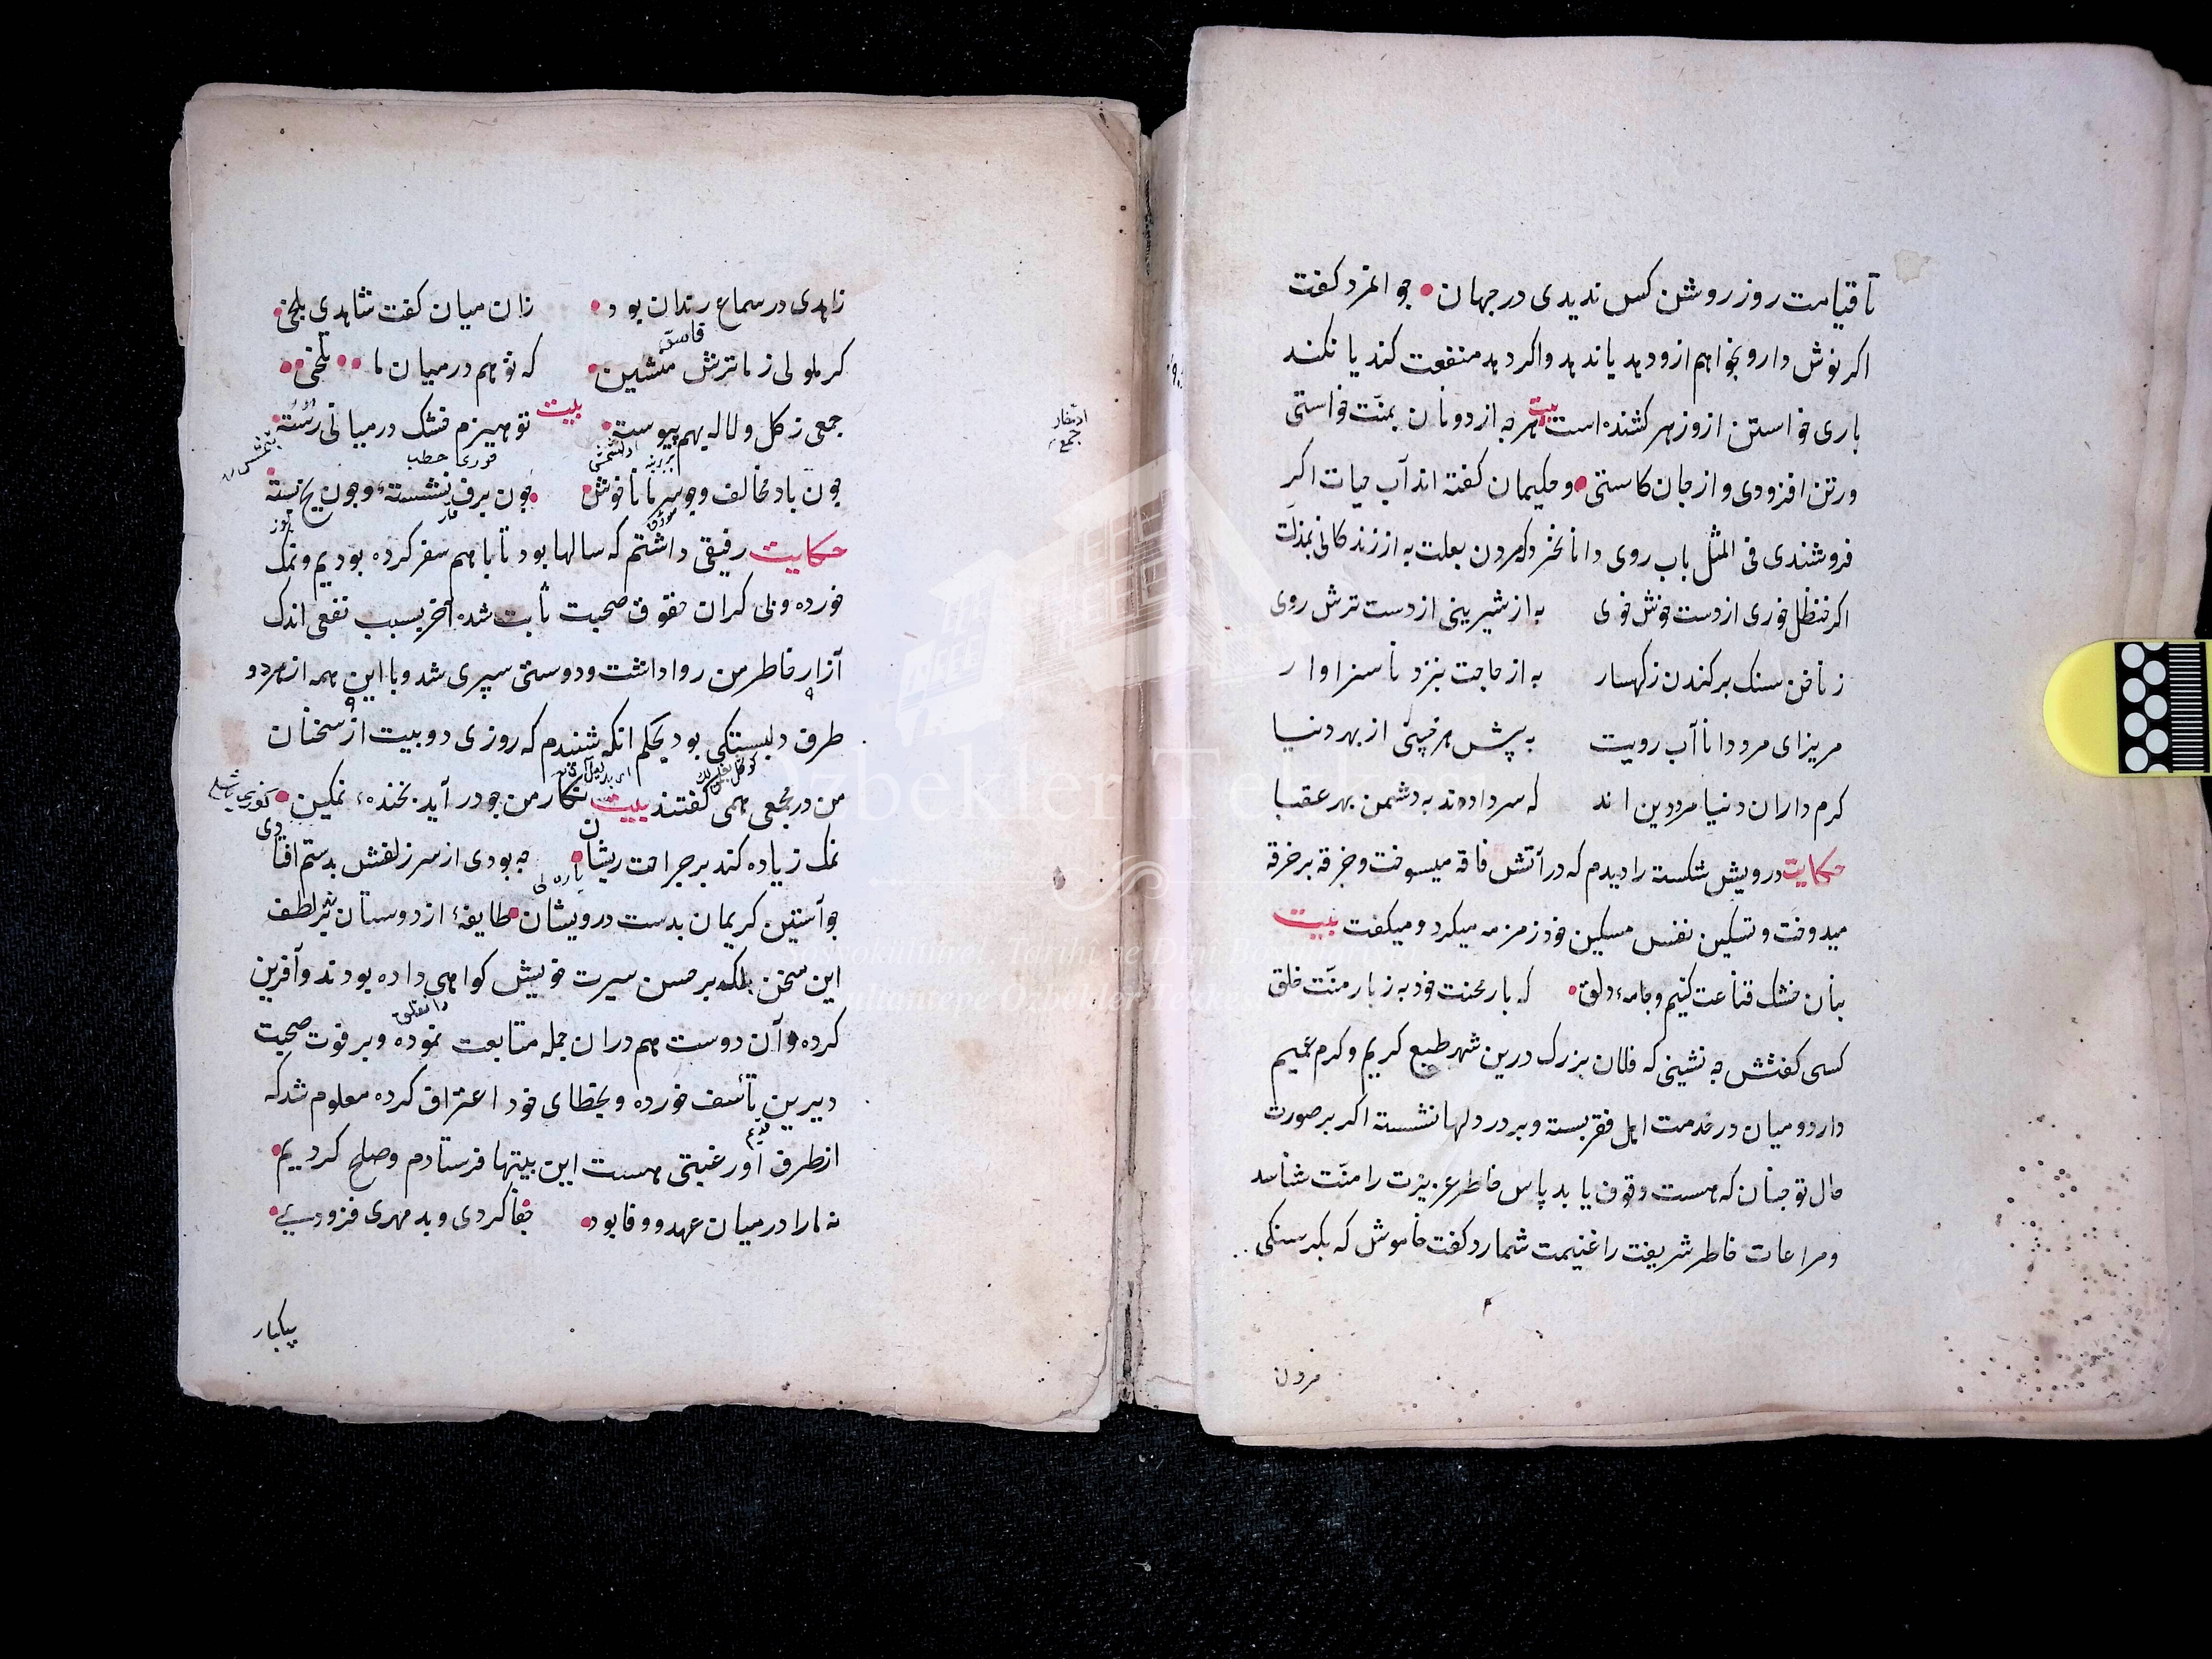 تا قیامت روز روشن کس ندیدی در جهان جوانمرد کفت
اکر نوش دارو بخواهم ازو دهد یا ندهد واکر دهد منفعت کند یا نکند
باری خواستن ازو زهر کشنده است بیت هر چه از دونان بمنّت خواستی
در تن افزودی و از جان کاستی و حکیمان کفته اند آب حیات اکر
فروشندی فی المثل باب روی دانا نخرد که مردن بعلت به از زندکانی بمذلت
اکر حنظل خوری از دست خوش خوی به از شیرینی از دست ترش روی
ز ناخن سنک برکندن ز کهسار به از حاجت بنزد ناسزاوار
مریز ای مرد دانا آب رویت به پیش هر خسی از بهر دنیا
کرم داران دنیا مرد دین اند که سر دادند به دشمن بهر عقبا
حکایت درویش شکسته را دیدم که در آتش فاقه میسوخت و خرقه بر خرقه
میدوخت و تسکین نفس مسکین خود زمزمه میکرد و میکفت بیت
بنان خشک قناعت کنیم و جامهء دلق که بار محنت خود به ز بار منّت خلق
کسی کفتش چه نشینی که فلان بزرک درین شهر طبع کریم و کرم عمیم
دارد و میان در خدمت اهل فقر بسته و بر در دلها نشسته اکر بر صورت
حال تو چنان که هست وقوف یابد پاس خاطر عزیزت را منّت شناسد
و مراعات خاطر شریفت را غنیمت شمارد کفت خاموش که بکرسنکی
مردن
زاهدی در سماع رندان بود زان میان کفت شاهدی بلخی
کر ملولی ز ما ترش منشین که تو هم در میان ما تلخی
جمعی ز کل و لاله بهم پیوسته بیت تو هیزم خشک در میانی رسته
چون باد مخالف و چو سرما ناخوش چون برف نشستهء و چون یخ بسته
حکایت رفیقی داشتم که سالها بود تا با هم سفر کرده بودیم و نمک
خورده و بی کران حقوق صحبت ثابت شده آخر بسبب نفعی اندک
آزار خاطر من روا داشت و دوستی سپری شد و با این همه از هر دو
طرف دلبستکی بود بحکم انکه شنیدم که روزی دو بیت از سخنان
من در مجمعی همی کفتند بیت نکار من چو در آید بخندهء نمکین
نمک زیاده کند بر جراحت ریشان چه بودی از سر زلفش بدستم افتادی
چو آستین کریمان بدست درویشان طایفهء از دوستان بر لطف
این سخن بلکه بر حسن سیرت خویش کواهی داده بودند و آفرین
کرده و آن دوست هم در ان جمله متابعت نموده و بر فوت صحبت
دیرین تأسف خورده و بخطای خود اعتراف کرده معلوم شد که
از طرف او رغبتی هست این بیتها فرستادم و صلح کردیم
نه ما را در میان عهد و وفا بود جفا کردی و بد مهری فزودی
بیکبار